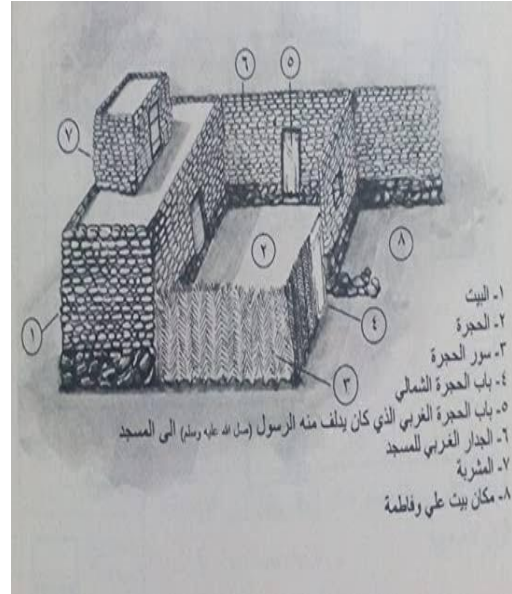 ٦
٥
٧
٢
٨
١
٤
٣
١- البيت
٢- الحجرة
٣- سور الحجرة
٤- باب الحجرة الشمالي
٥- باب الحجرة الغربي الذي كان يدلف منه الرسول (صلى الله عليه وسلم) الى المسجد
٦- الجدار الغربي للمسجد
٧- المشربة
٨- مكان بيت علي وفاطمة